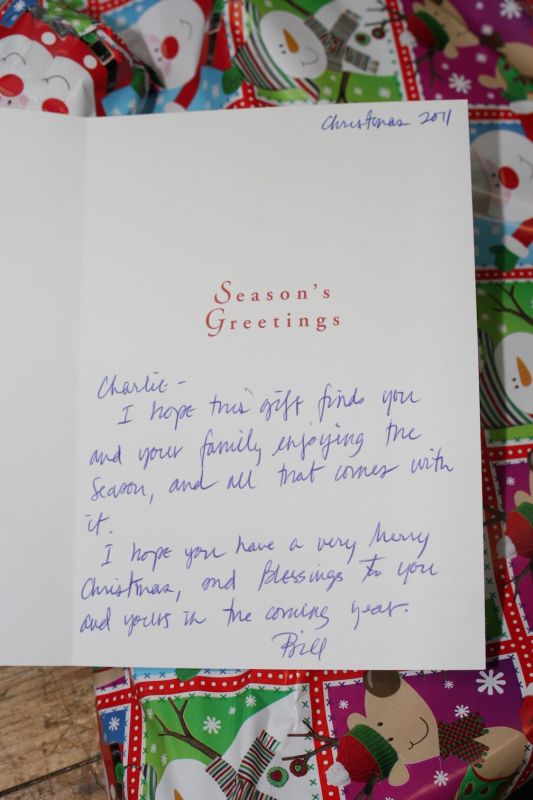 Christmas 2011
Season's
Greetings
Charlie-
I hope this gift finds you
and your family enjoying the
Season, and all that comes with
it.
I hope you have a very Merry
Christmas, and Blessings to you
and yours in the coming year.
Bill